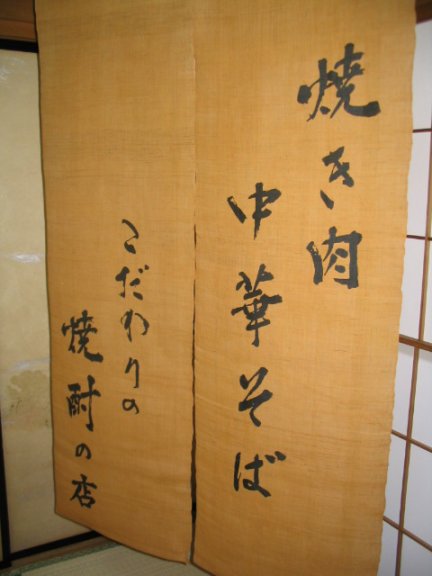 焼き肉
中華そば
こだわりの
焼酎の店